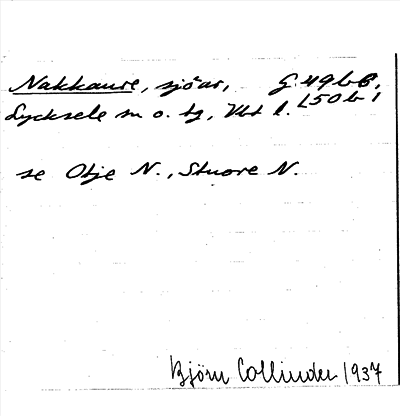 Nakkaure, sjöar, G. 49 b C,
Lycksele sn o. tg, Vbt l. L50 b 1
se Otje N., Stuore N.
Björn Collinder 1937